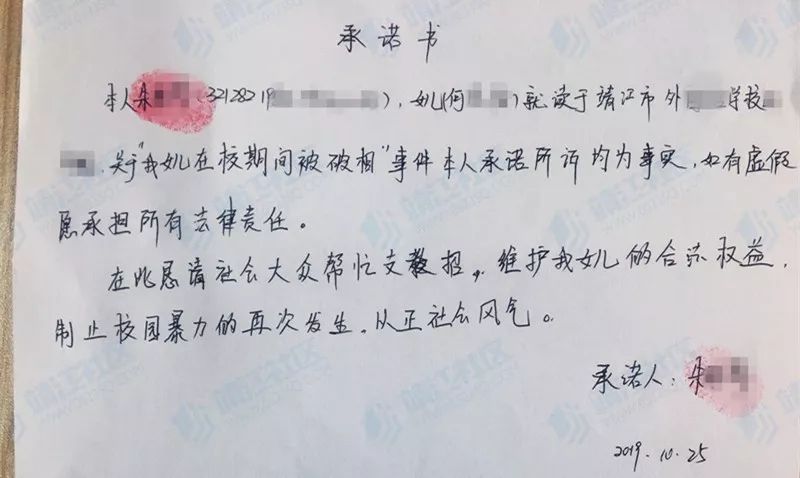 承诺书
本人朱 (32128219 ), 女儿(何 )就读于靖江市外 学校
.关于"我女儿在校期间被破相"事件本人承诺所诉均为事实,如有虚假
愿承担所有法律责任。
在此恳请社会大众帮忙支招,维护我女儿的合法权益,
制止校园暴力的再次发生,从正社会风气。
承诺人:朱
2019.10.25
靖江社区